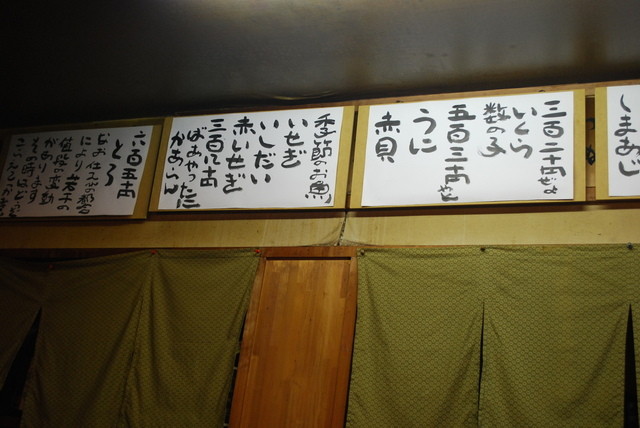 しまあじ
三百二十円ぜよ
いくら
数の子
五百三十円やと
うに
赤貝
季節のお魚
いせぎ
いしだい
赤いせぎ
三百八十円
ばあやったに
かあらん
六百五十円
とろ
なお仕入の都合
により若干の
値段の変動
があります
その時は